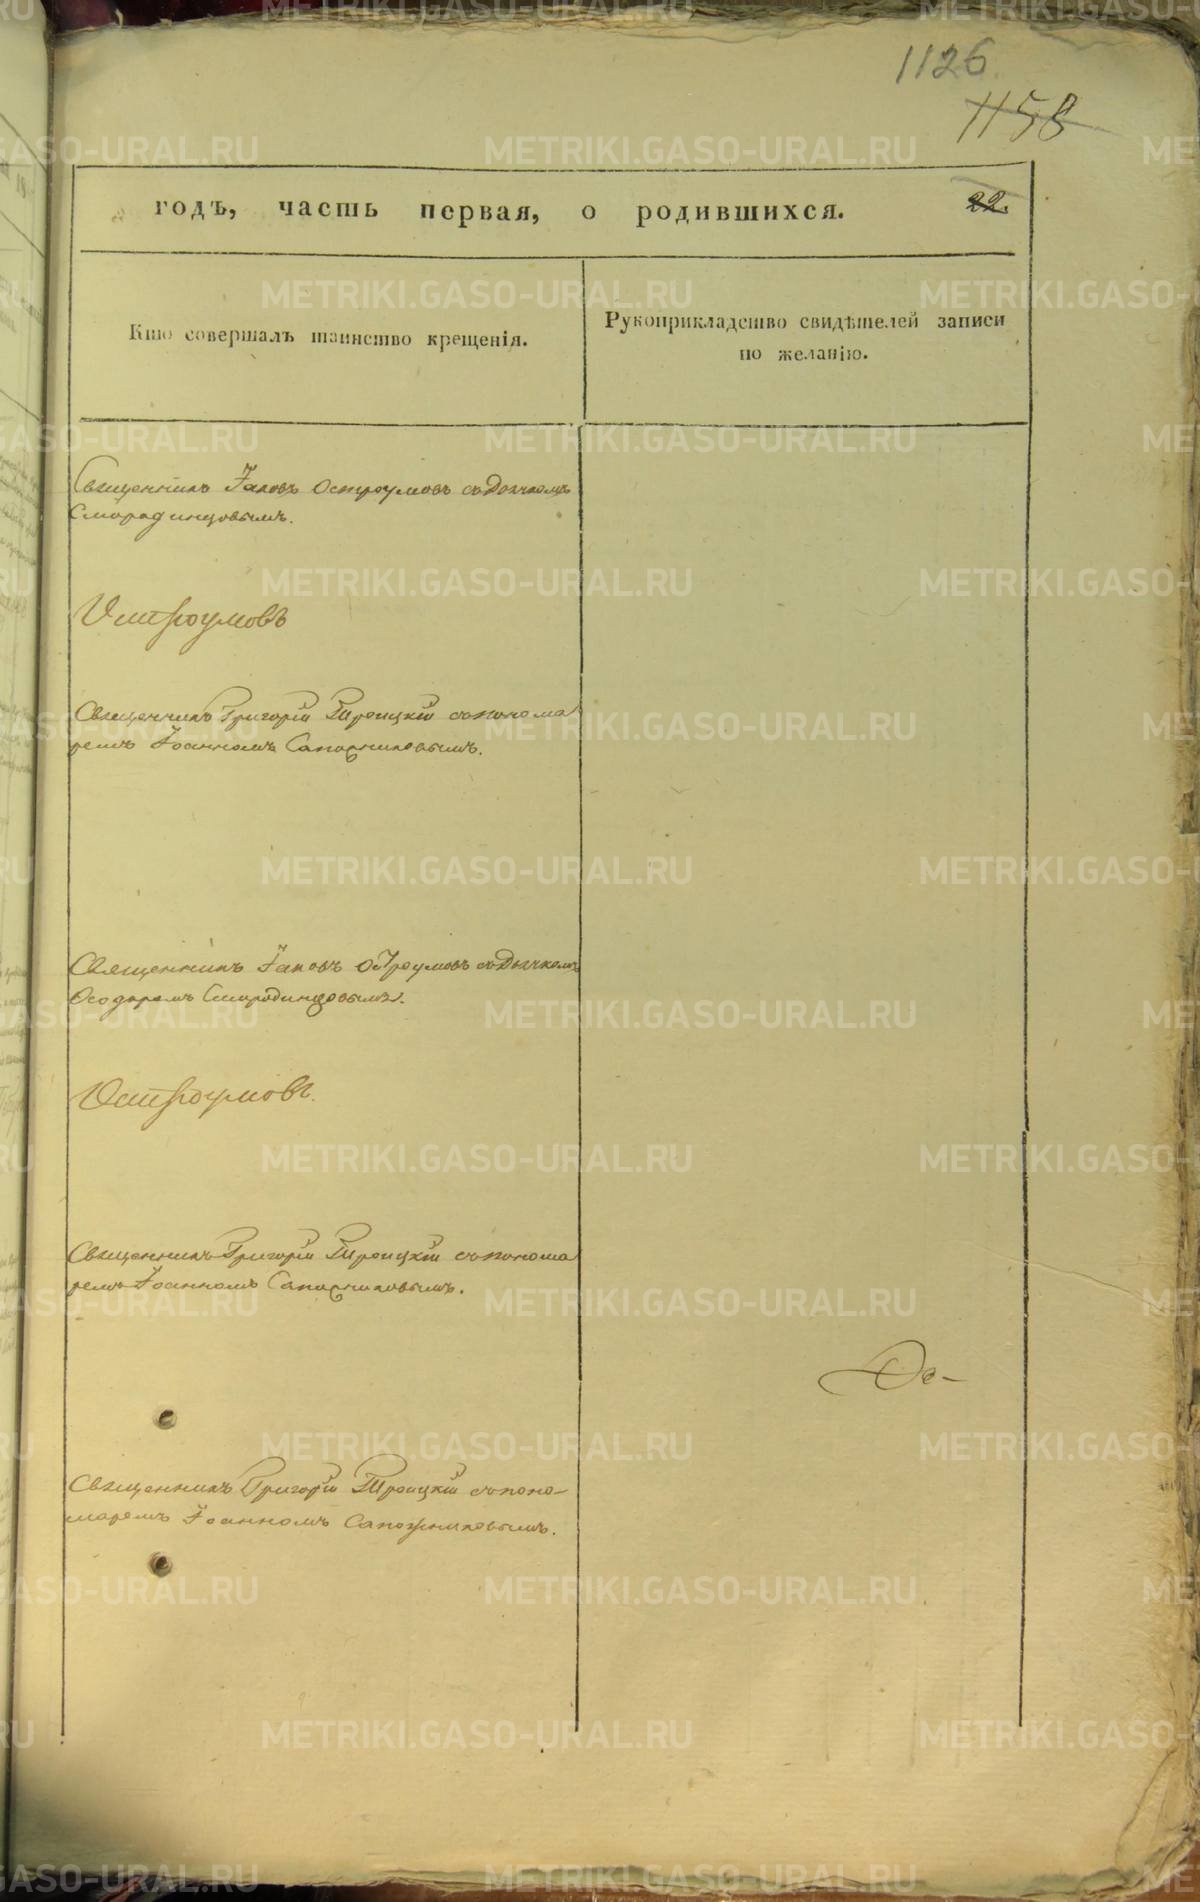 1126
1158
годъ, часть первая, о родившихся. 22.
Кто совершалъ таинство крещенія.
Рукоприкладство свидѣтелей записи
по желанію.
Священникъ Іаковъ Остроумовъ съ Дьячкомъ
Смородинцовымъ.
Остроумовъ
Священникъ Григорій Троицкій съ понома
ремъ Іоанномъ Сапожниковымъ.
Священникъ Іаковъ Остроумовъ съ Дьячкомъ
Ѳеодоромъ Смородинцовымъ.
Остроумовъ.
Священникъ Григорій Троицкій съ понома
ремъ Іоанномъ Сапожниковымъ.
Священникъ Григорій Троицкій съ поно-
маремъ Іоанномъ Сапожниковымъ.
METRIKI.GASO-URAL.RU